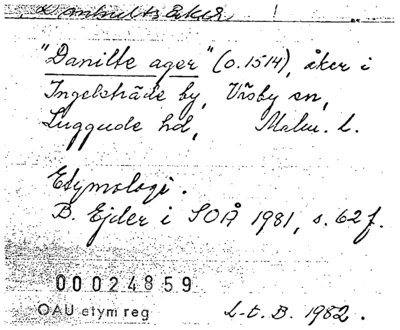 "Danilte ager" (o. 1514), åker i
Ingelsträde by, Väsby sn,
Luggude hd, Malm. l.
Etymologi.
B. Ejder i SOÅ 1981, s. 62 f.
00024859
OAU etym reg
L-E. B. 1982.